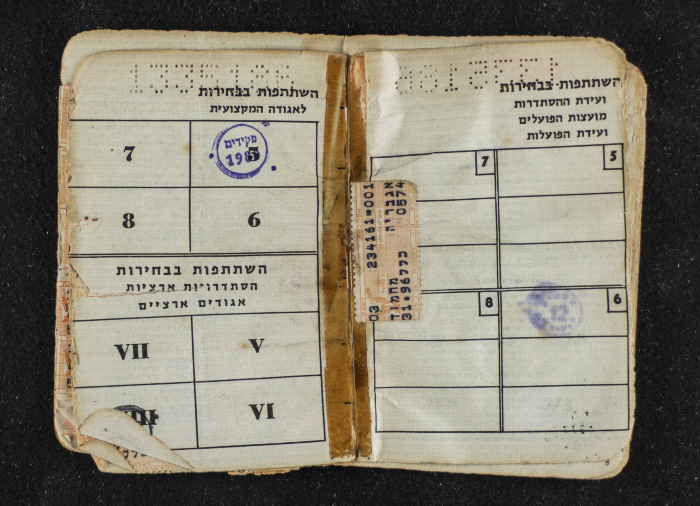 השתתפות בבחירות
ועידת ההסתדרות
מועצות הפועלים
ועידת הפועלות
7
5
8
6
234161=001
אגבריה
0574
03
מחמוד
31.96773
8
השתתפות בבחירות
לאגודה המקצועית
7
5
פקידים
8
6
השתתפות בבחירות
הסתדרויות ארציות
אגודים ארציים
VII
V
VI